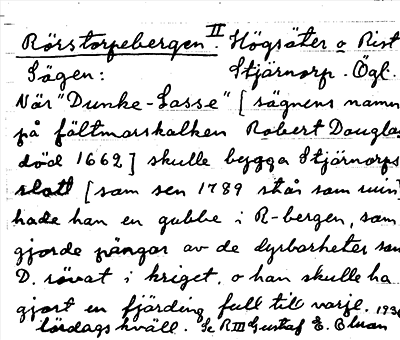 Rörstorpebergen II. Högsäter o Rist
Sägen: Stjärnorp. Ögl.
När "Dunke-Lasse" [sägnens namn
på fältmarskalken Robert Douglas
död 1662] skulle bygga Stjärnorps
slott [som sen 1789 står som ruin]
hade han en gubbe i R-bergen, som
gjorde pängar av de dyrbarheter som
D. rövat i kriget, o han skulle ha
gjort en fjärding full till varje
lördagskväll. Se R III Gustaf E. Olsson 193